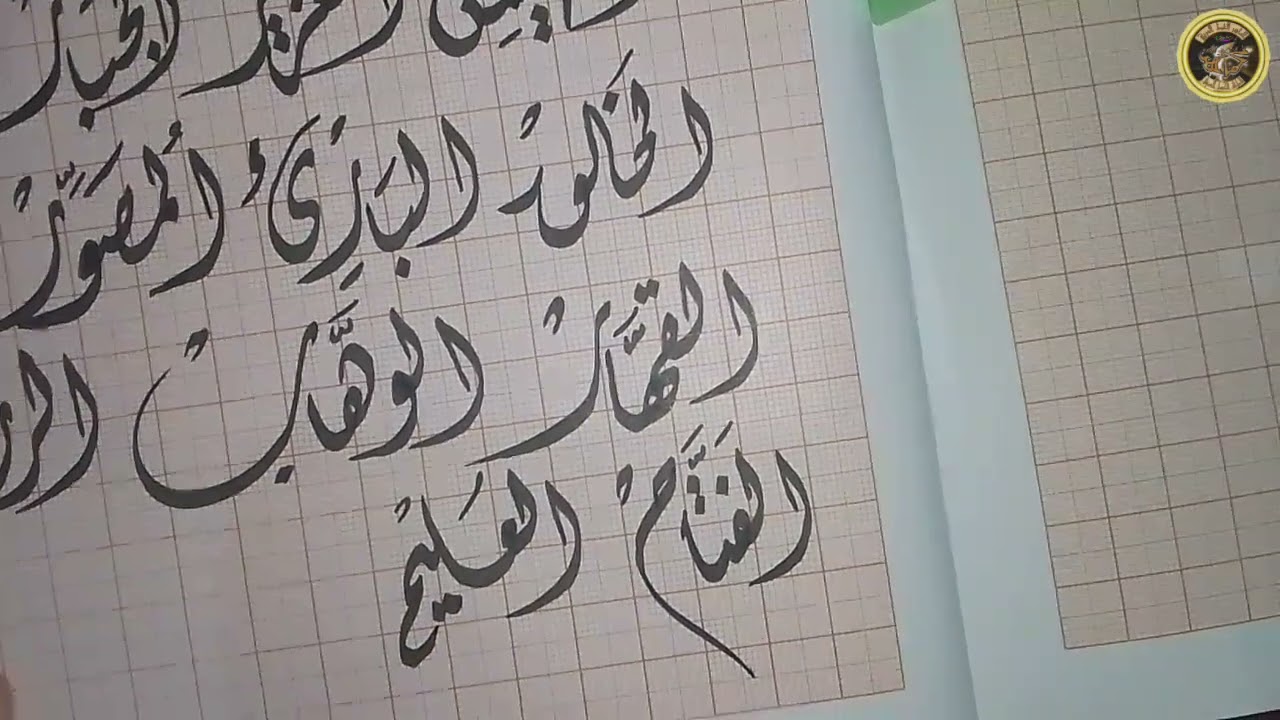 العزيز الجبار
الخَالقُ البَارِئُ المُصَوِّرُ
القهَّارُ الوهَّابُ
الفَتَّاحُ العَليمُ